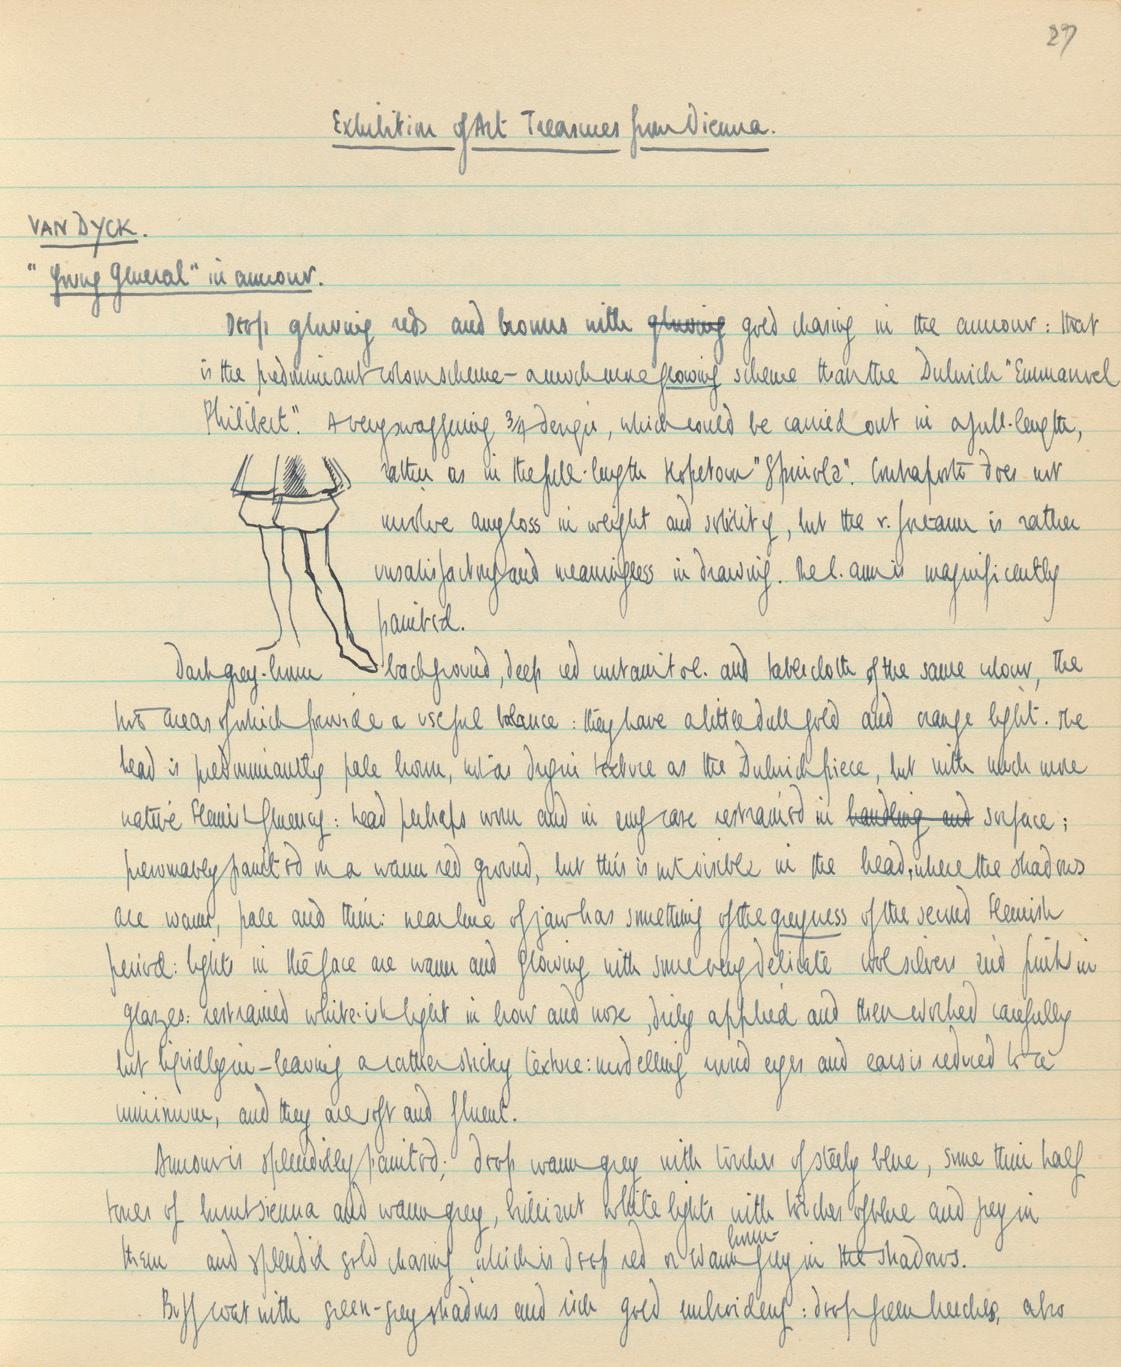 27
Exhibition of Art Treasures from Vienna.
VAN DYCK.
"Young General" in armour.
Deep glowing reds and browns with glowing gold chasing in the armour: that
is the predominant colour scheme – a much more glowing scheme than the Dulwich "Emmanuel
Philibert". A very swaggering 3/4 design, which could be carried out in a full-length,
rather as in the full-length Hopetoun "Spinola". Contraposto does not
involve any loss in weight and solidity, but the r. forearm is rather
unsatisfactory and meaningless in drawing. The l. arm is magnificently
painted.
Dark grey-brown background, deep red curtain to l. and tablecloth of the same colour, the
two areas of which provide a useful balance: they have a little dull gold and orange light. The
head is predominantly pale brown, not as dry in texture as the Dulwich piece, but with much more
native Flemish fluency: head perhaps worn and in any case restrained in handling and surface;
presumably painted on a warm red ground, but this is not visible in the head, where the shadows
are warm, pale and thin: near line of jaw has something of the greyness of the second Flemish
period: lights in the face are warm and glowing with some very delicate cool silvers and pinks in
glazes: restrained white-ish light in brow and nose, drily applied and then worked carefully
but liquidly in – leaving a rather sticky texture: modelling round eyes and ears is reduced to a
minimum, and they are soft and fluent.
Armour is splendidly painted; deep warm grey with touches of steely blue, some thin half
tones of burnt sienna and warm grey, brilliant white lights with touches of blue and grey in
them and splendid gold chasing which is deep red or warm brown-grey in the shadows.
Buff coat with green-grey shadows and rich gold embroidery: deep green breeches, also